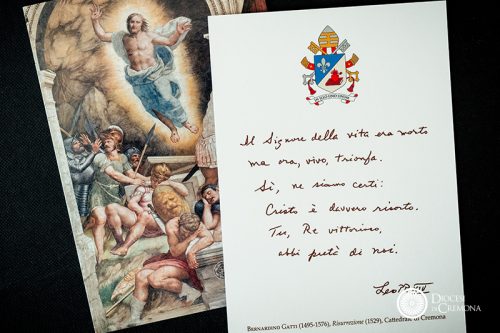 Il Signore della vita era morto
ma ora, vivo, trionfa.
Sì, ne siamo certi:
Cristo è davvero risorto.
Tu, Re vittorioso,
abbi pietà di noi.
Leo PP. XIV
DIOCESI
DI CREMONA
BERNARDINO GATTI (1495-1576), Risurrezione (1529), Cattedrale di Cremona